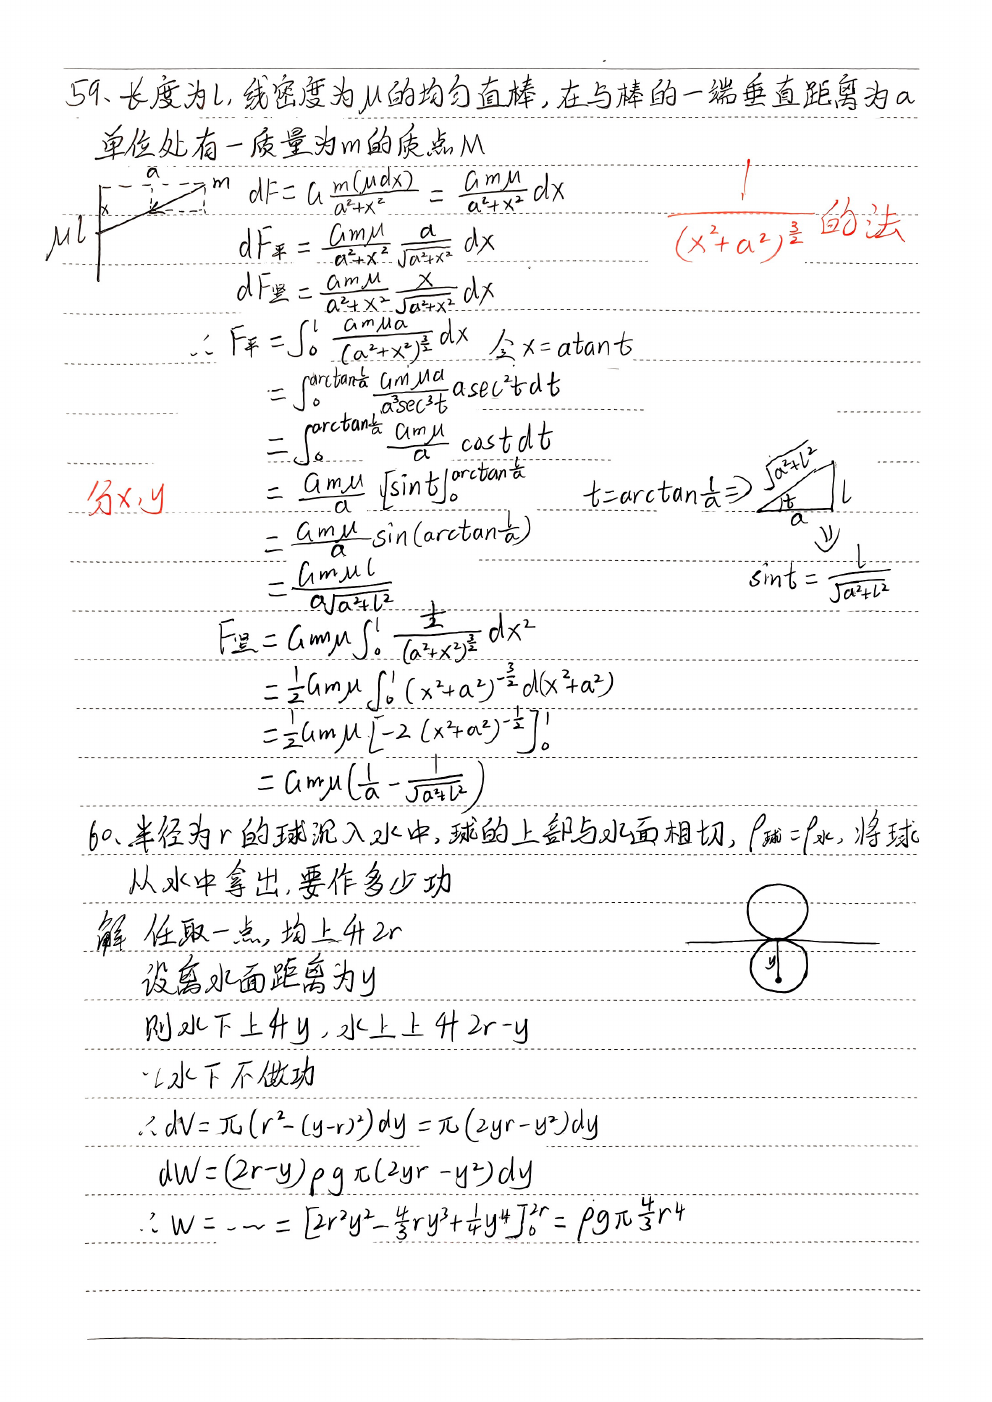 59、长度为l,线密度为μ的均匀直棒,在与棒的一端垂直距离为a
单位处有一质量为m的质点M
a
m
x
μ
l
dF = G m(μdx)/(a²+x²) = Gmμ/(a²+x²) dx
1/(x²+a²)^(3/2) 的法
dF平 = Gmμ/(a²+x²) a/√(a²+x²) dx
dF竖 = Gmμ/(a²+x²) x/√(a²+x²) dx
∴ F平 = ∫₀^l Gmμa/(a²+x²)^(3/2) dx 令x=atant
= ∫₀^(arctan l/a) Gmμa/(a³sec³t) asec²t dt
= ∫₀^(arctan l/a) Gmμ/a cost dt
分x,y
= Gmμ/a [sint]₀^(arctan l/a)
t=arctan l/a ⇒
√(a²+l²)
t
l
a
= Gmμ/a sin(arctan l/a)
⇓
sint = l/√(a²+l²)
= Gmμl/(a√(a²+l²))
F竖 = Gmμ ∫₀^l (1/2)/(a²+x²)^(3/2) dx²
= 1/2 Gmμ ∫₀^l (x²+a²)^(-3/2) d(x²+a²)
= 1/2 Gmμ [-2(x²+a²)^(-1/2)]₀^l
= Gmμ(1/a - 1/√(a²+l²))
60、半径为r的球沉入水中,球的上部与水面相切,ρ球=ρ水,将球
从水中拿出,要作多少功
解 任取一点,均上升2r
设离水面距离为y
y
则水下上升y,水上上升2r-y
∵水下不做功
∴dV=π(r²-(y-r)²)dy=π(2yr-y²)dy
dW=(2r-y)ρgπ(2yr-y²)dy
∴W=……=[2r²y²-4/3 ry³+1/4 y⁴]₀^(2r)=ρgπ 4/3 r⁴